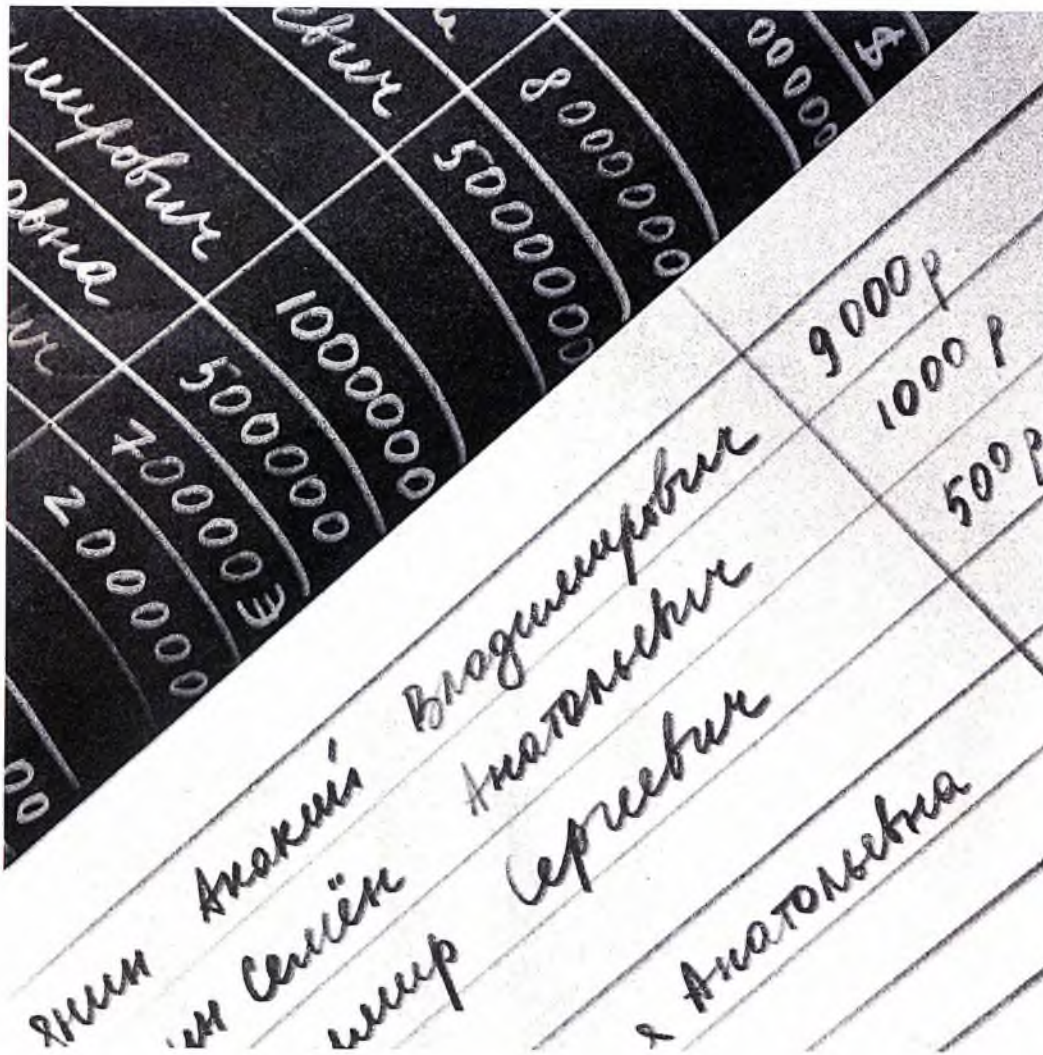 $
00000
8000000
евич 5000000
мирович 1000000
овна 500000
ич 70000€
200000
00
янин Акакий Владимирович 9000р
ин Семён Анатольевич 1000 р
имир Сергеевич 500 р
я Анатольевна